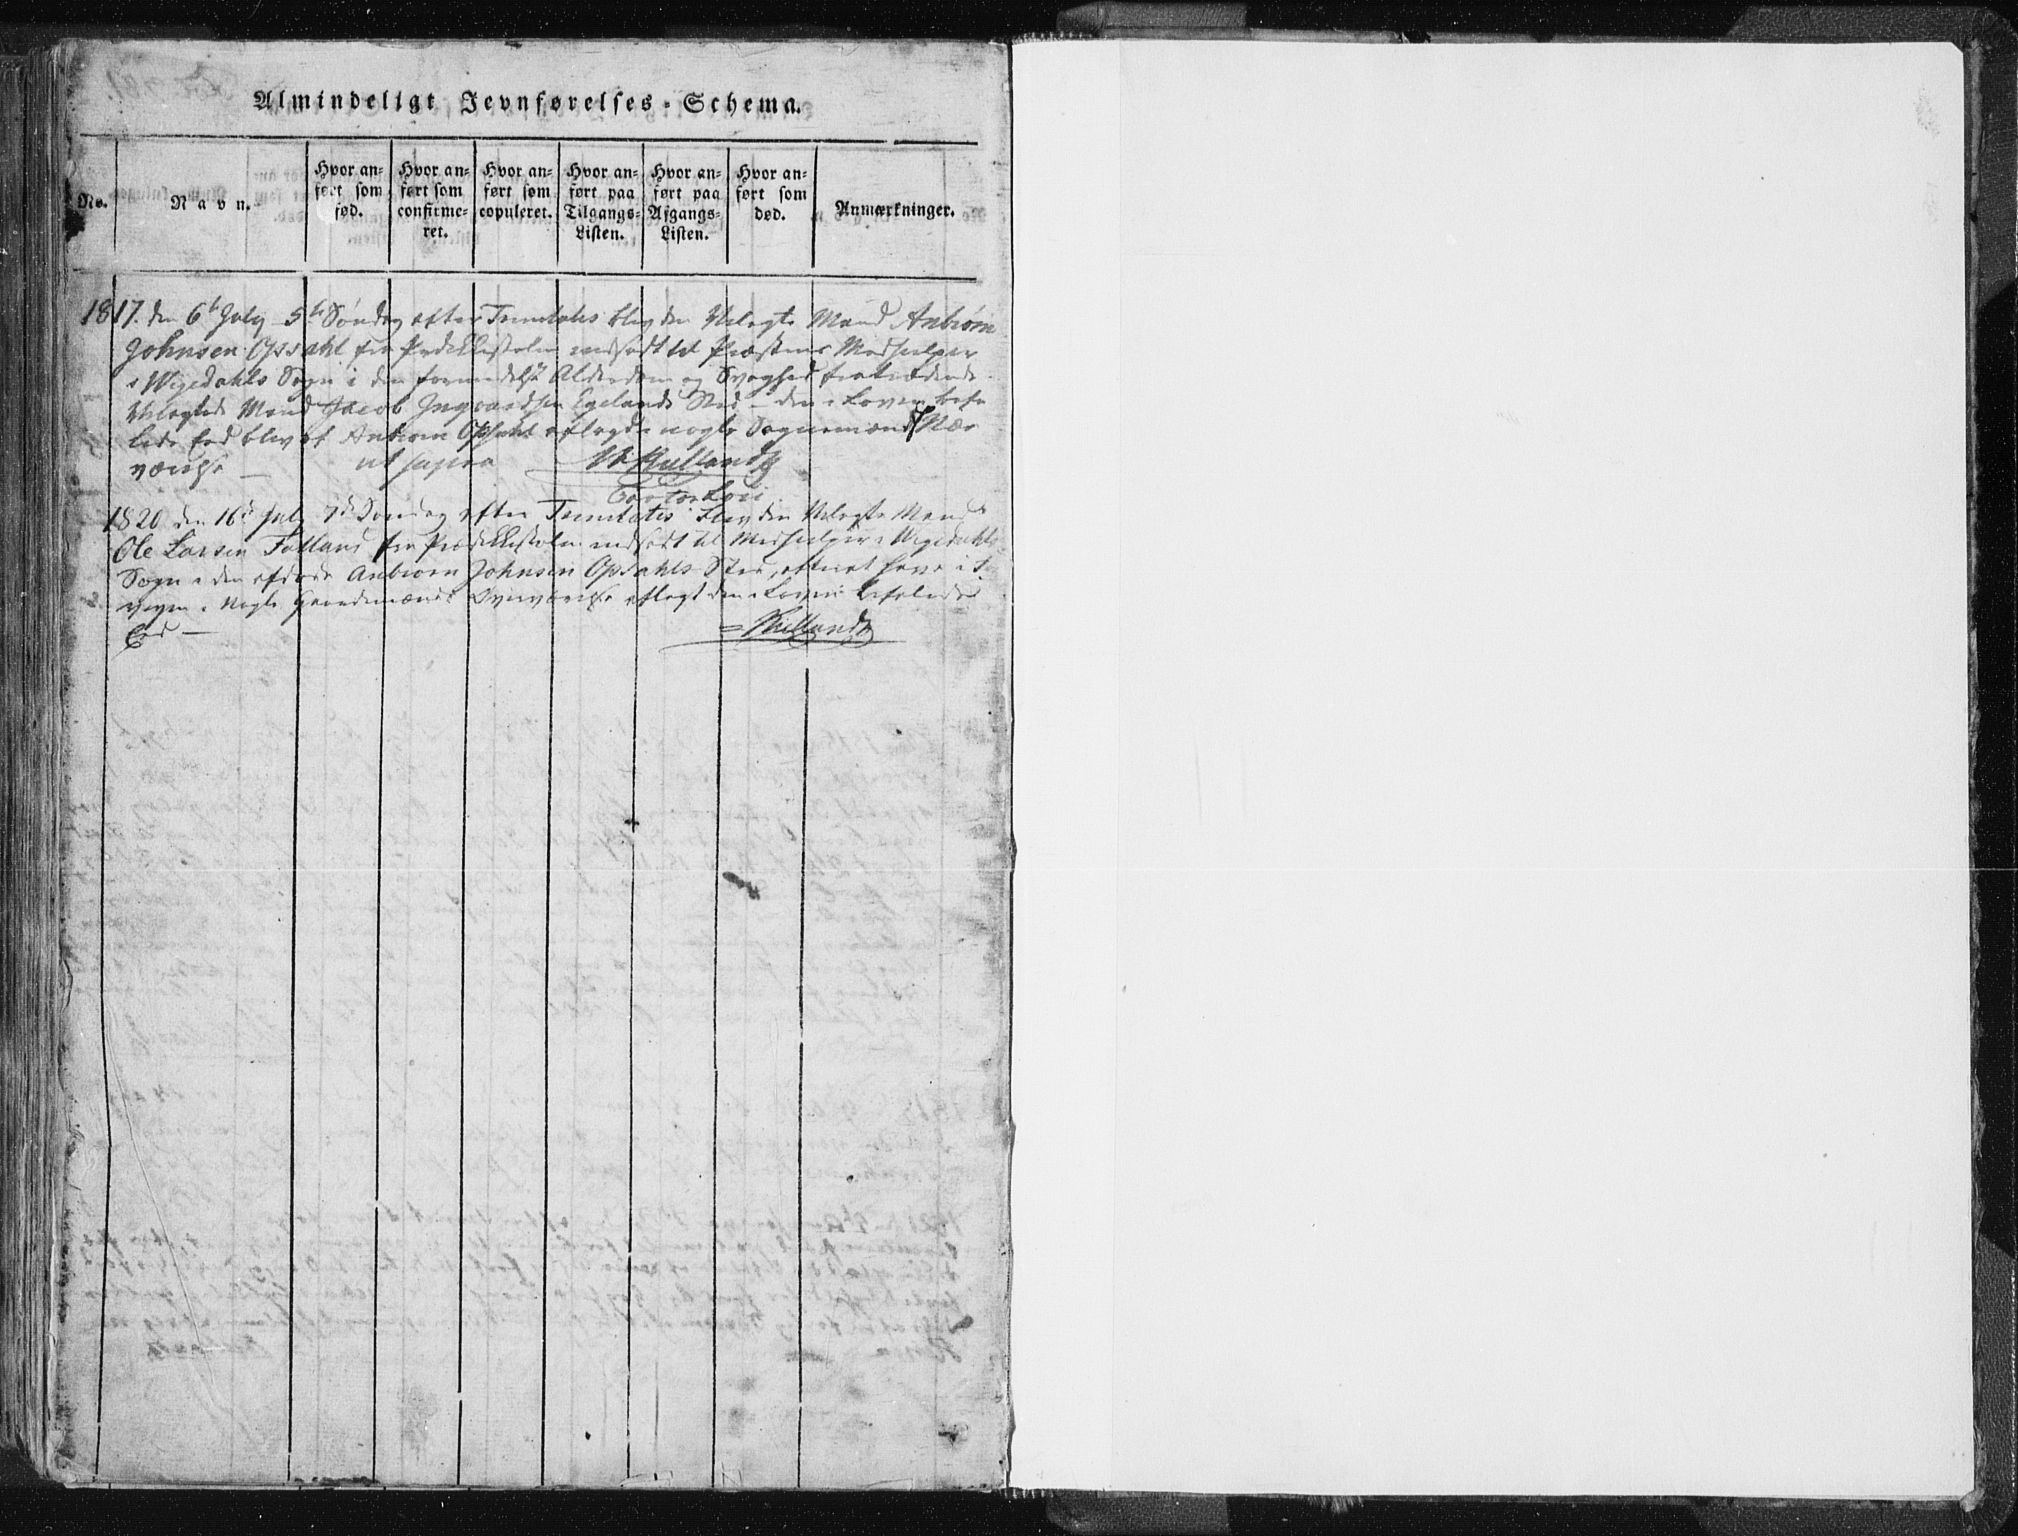 Almindeligt Jevnførelses-Schema.
No.
Navn.
Hvor an-
ført som
fød.
Hvor an-
ført som
confirme-
ret.
Hvor an-
ført som
copuleret.
Hvor an-
ført paa
Tilgangs-
Listen.
Hvor an-
ført paa
Afgangs-
Listen.
Hvor an-
ført som
død.
Anmærkninger.
1817. den 6te July 5te Søndag efter Trinitatis blev den Velagte Mand Anbiørn
Johnsen Opsahl fra Prædikkestolen indsadt til Præstens Medhielper
i Wigedahls Sogn i den formedelst Alderdom og Svaghed fratrædende
Velagte Mand Jacob Ingvardsen Egelands Sted – den i Loven befa
lede Eed blev af Anbiørn Opsahl aflagde nogle Sognemænds Nær
værelse – ut supra
Kielland
1820 den 16de July 7de Søndag efter Trinitatis blev den Velagte Mand
Ole Larsen Fatland fra Prædikkestolen indsadt til Medhielper i Wigedahls
Sogn i den afdøde Anbiørn Johnsen Opsahls Sted, efterat have i
nogle Gaardmænds Overværelse aflagt den i Loven befalede
Eed –
Kielland